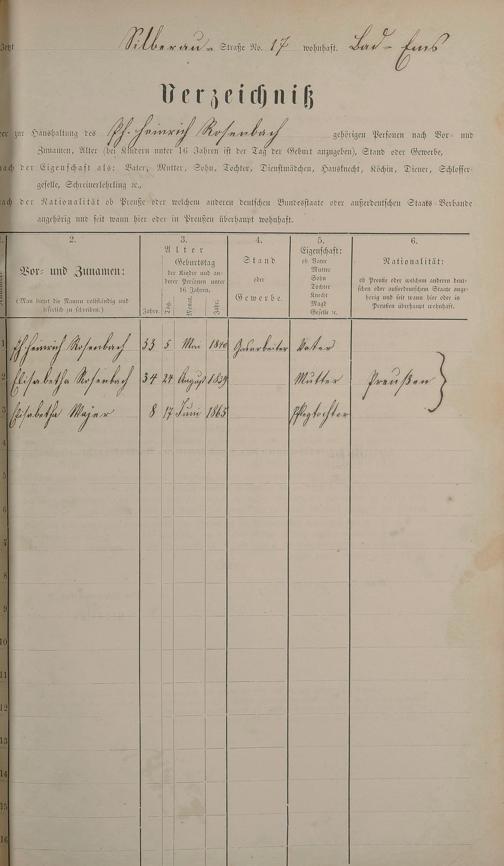 Jetzt Silberau- Straße No. 17 wohnhaft. Bad-Ems
Verzeichniß
der zur Haushaltung des Ph. Heinrich Rosenbach gehörigen Personen nach Vor- und
Zunamen, Alter (bei Kindern unter 16 Jahren ist der Tag der Geburt anzugeben), Stand oder Gewerbe,
nach der Eigenschaft als: Vater, Mutter, Sohn, Tochter, Dienstmädchen, Hausknecht, Köchin, Diener, Schlosser-
geselle, Schreinerlehrling ꝛc.,
nach der Nationalität ob Preuße oder welchem anderen deutschen Bundesstaate oder außerdeutschen Staats-Verbande
angehörig und seit wann hier oder in Preußen überhaupt wohnhaft.
1. 2. 3. 4. 5. 6.
Vor- und Zunamen:
(Man bittet die Namen vollständig und
leserlich zu schreiben.)
Alter
Geburtstag
der Kinder und an-
derer Personen unter
16 Jahren.
Jahre. Tag. Monat. Jahr.
Stand
oder
Gewerbe.
Eigenschaft:
ob Vater
Mutter
Sohn
Tochter
Knecht
Magd
Geselle ꝛc.
Nationalität:
ob Preuße oder welchem anderen deut-
schen oder außerdeutschen Staate ange-
hörig und seit wann hier oder in
Preußen überhaupt wohnhaft.
1 Ph Heinrich Rosenbach 33 5 Mai 1840 Gasarbeiter Vater
2 Elisabetha Rosenbach 34 24 August 1839 Mutter Preußen
3 Elisabetha Majer 8 17 Juni 1865 Pflegtochter
4
5
6
7
8
9
10
11
12
13
14
15
16